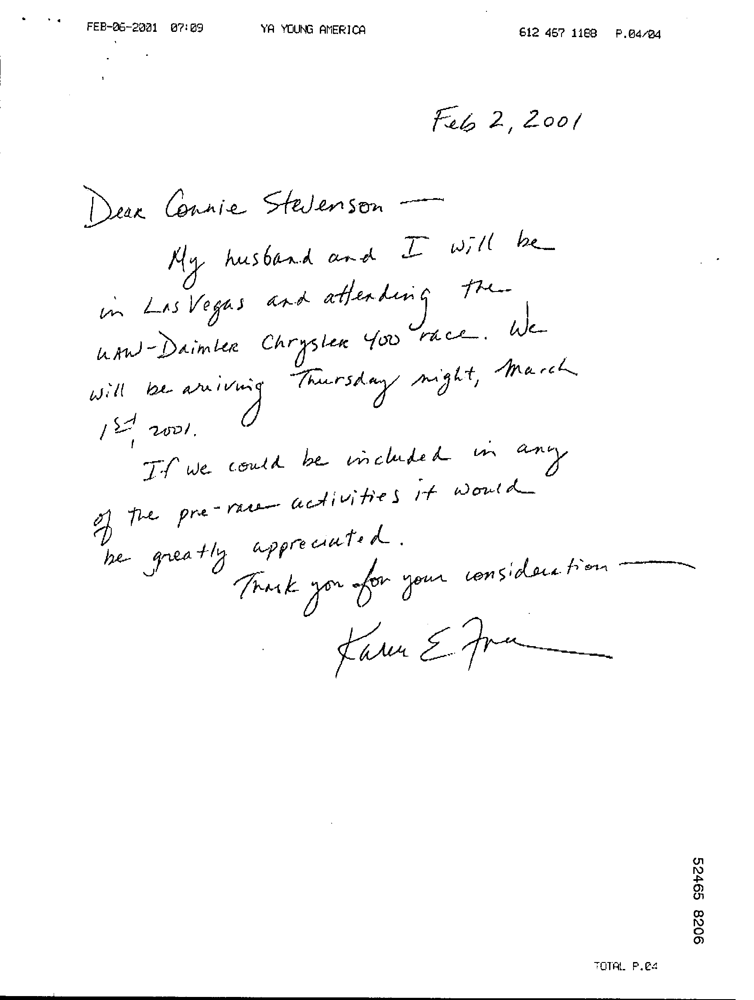 FEB-06-2001 07:09 YA YOUNG AMERICA 612 467 1188 P.04/04
Feb 2, 2001
Dear Connie Stevenson —
My husband and I will be
in Las Vegas and attending the
UAW-Daimler Chrysler 400 race. We
will be ariving Thursday night, March
1st, 2001.
If we could be included in any
of the pre-race activities it would
be greatly appreciated.
Thank you for your consideration —
Karen E
52465 8206
TOTAL P.04